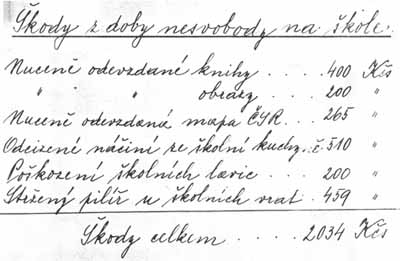 Škody z doby nesvobody na škole.
Nuceně odevzdané knihy . . . . 400 Kčs
" " obrazy . . . . 200 "
Nuceně odevzdaná mapa ČSR . . 265 "
Odcizené náčiní ze školní kuchy. č. 510 "
Poškození školních lavic . . . 200 "
Stržený pilíř u školních vrat . 459 "
Škody celkem . . . . 2034 Kčs